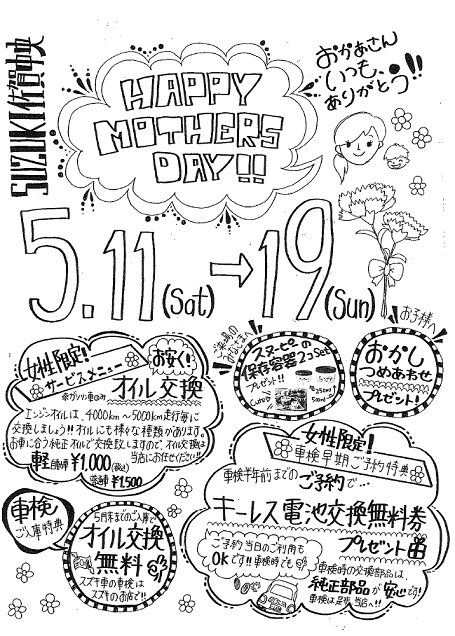 SUZUKI佐賀中央
HAPPY
MOTHERS
DAY!!
おかあさん
いつも、
ありがとう!!
5.11(Sat)→19(Sun)
女性限定!
サービスメニュー
お安く!
オイル交換
エンジンオイルは、4000km〜5000km走行毎に
交換しましょう!!オイルにも様々な種類があります。
お車に合う純正オイルで交換致しますので、オイル交換は
当店にお任せください!!
軽 ¥1,000(税込)
¥1,500
ご来場の
みなさまへ
スヌーピーの
保存容器2コSet
プレゼント!!
お子様へ
おかし
つめあわせ
プレゼント!
車検
ご入庫特典
5月末までのご入庫で
オイル交換
無料
スズキ車の車検は
スズキのお店で!!
女性限定!
車検早期ご予約特典
車検半年前までのご予約で…
キーレス電池交換無料券
プレゼント
ご予約当日のご利用も
OKです!!車検時でも
車検時の交換部品は、
純正部品が安心です!
車検は是非当店へ!!